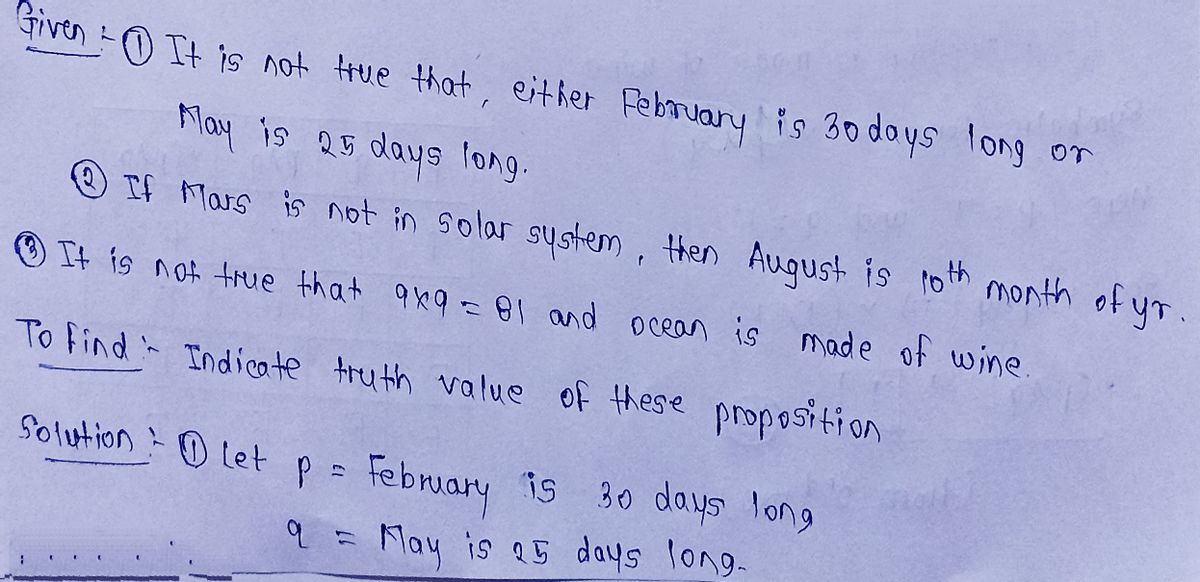 Given :- ① It is not true that, either February is 30 days long or
May is 25 days long.
② If Mars is not in solar system, then August is 10th month of yr.
③ It is not true that 9x9 = 81 and ocean is made of wine.
To find :- Indicate truth value of these proposition
Solution :- ① Let p = February is 30 days long
q = May is 25 days long.